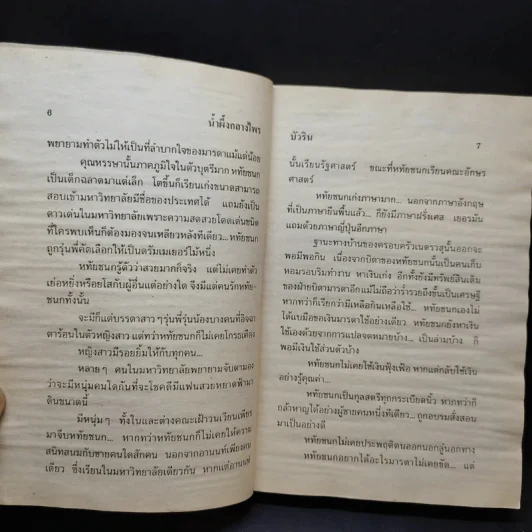 6
น้ำผึ้งกลางไพร
พยายามทำตัวไม่ให้เป็นที่ลำบากใจของมารดาแม้แต่น้อย
คุณหรรษานั้นภาคภูมิใจในตัวบุตรีมาก หทัยชนก
เป็นเด็กฉลาดมาแต่เล็ก โตขึ้นก็เรียนเก่งขนาดสามารถ
สอบเข้ามหาวิทยาลัยมีชื่อของประเทศได้ แถมยังเป็น
ดาวเด่นในมหาวิทยาลัยเพราะความสดสวยโดดเด่นชนิด
ที่ใครพบเห็นก็ต้องมองจนเหลียวหลังทีเดียว...หทัยชนก
ถูกรุ่นพี่คัดเลือกให้เป็นดรัมเมเยอร์ไม้หนึ่ง
หทัยชนกรู้ตัวว่าสวยมากก็จริง แต่ไม่เคยทำตัว
เย่อหยิ่งหรือยโสกับผู้อื่นแต่อย่างใด จึงมีแต่คนรักหทัย-
ชนกทั้งนั้น
จะมีก็แต่บรรดาสาวๆรุ่นพี่รุ่นน้องบางคนที่อิจฉา
ตาร้อนในตัวหญิงสาว แต่ทว่าหทัยชนกก็ไม่เคยโกรธเคือง
หญิงสาวมีรอยยิ้มให้กับทุกคน...
หลายๆ คนในมหาวิทยาลัยพยายามจับตามอง
ว่าจะมีหนุ่มคนใดกันที่จะโชคดีมีแฟนสวยหยาดฟ้ามา
ดินขนาดนี้
มีหนุ่มๆ ทั้งในและต่างคณะเฝ้าวนเวียนเพียร
มาจีบหทัยชนก... หากทว่าหทัยชนกก็ไม่เคยให้ความ
สนิทสนมกับชายคนใดสักคน นอกจากอานนท์เพียงคน
เดียว ซึ่งเรียนในมหาวิทยาลัยเดียวกัน หากแต่อานนท์
บัวริน
7
นั้นเรียนรัฐศาสตร์ ขณะที่หทัยชนกเรียนคณะอักษร
ศาสตร์
หทัยชนกเก่งภาษามาก... นอกจากภาษาอังกฤษ
ที่เป็นภาษายืนพื้นแล้ว... ก็ยังมีภาษาฝรั่งเศส เยอรมัน
แถมด้วยภาษาญี่ปุ่นอีกภาษา
ฐานะทางบ้านของครอบครัวเนตรวสุนั้นออกจะ
พอมีพอกิน เนื่องจากบิดาของหทัยชนกนั้นเป็นคนเก็บ
หอมรอมริบทำงาน หาเงินเก่ง อีกทั้งยังมีทรัพย์สินเดิม
ของฝ่ายบิดามารดาอีกแม้ไม่ถือว่าร่ำรวยถึงขั้นเป็นเศรษฐี
หากทว่าก็เรียกว่ามีเหลือกินเหลือใช้... หทัยชนกเองไม่
ได้แบมือขอเงินมารดาใช้อย่างเดียว หทัยชนกยังหาเงิน
ใช้เองด้วยจากการแปลจดหมายบ้าง... เป็นล่ามบ้าง ก็
พอมีเงินใช้ส่วนตัวบ้าง
หทัยชนกไม่เคยใช้เงินฟุ้งเฟ้อ หากแต่กลับใช้เงิน
อย่างรู้คุณค่า...
หทัยชนกเป็นกุลสตรีทุกกระเบียดนิ้ว หากทว่าก็
กล้าหาญได้อย่างผู้ชายคนหนึ่งทีเดียว... ถูกอบรมสั่งสอน
มาเป็นอย่างดี
หทัยชนกไม่เคยประพฤติตนออกนอกลู่นอกทาง
หทัยชนกอยากได้อะไรมารดาไม่เคยขัด... แต่